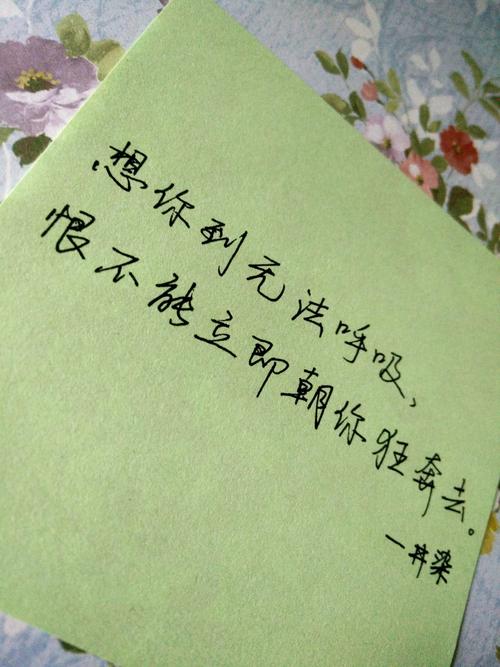 想你到无法呼吸,
恨不能立即朝你狂奔去。
一井染